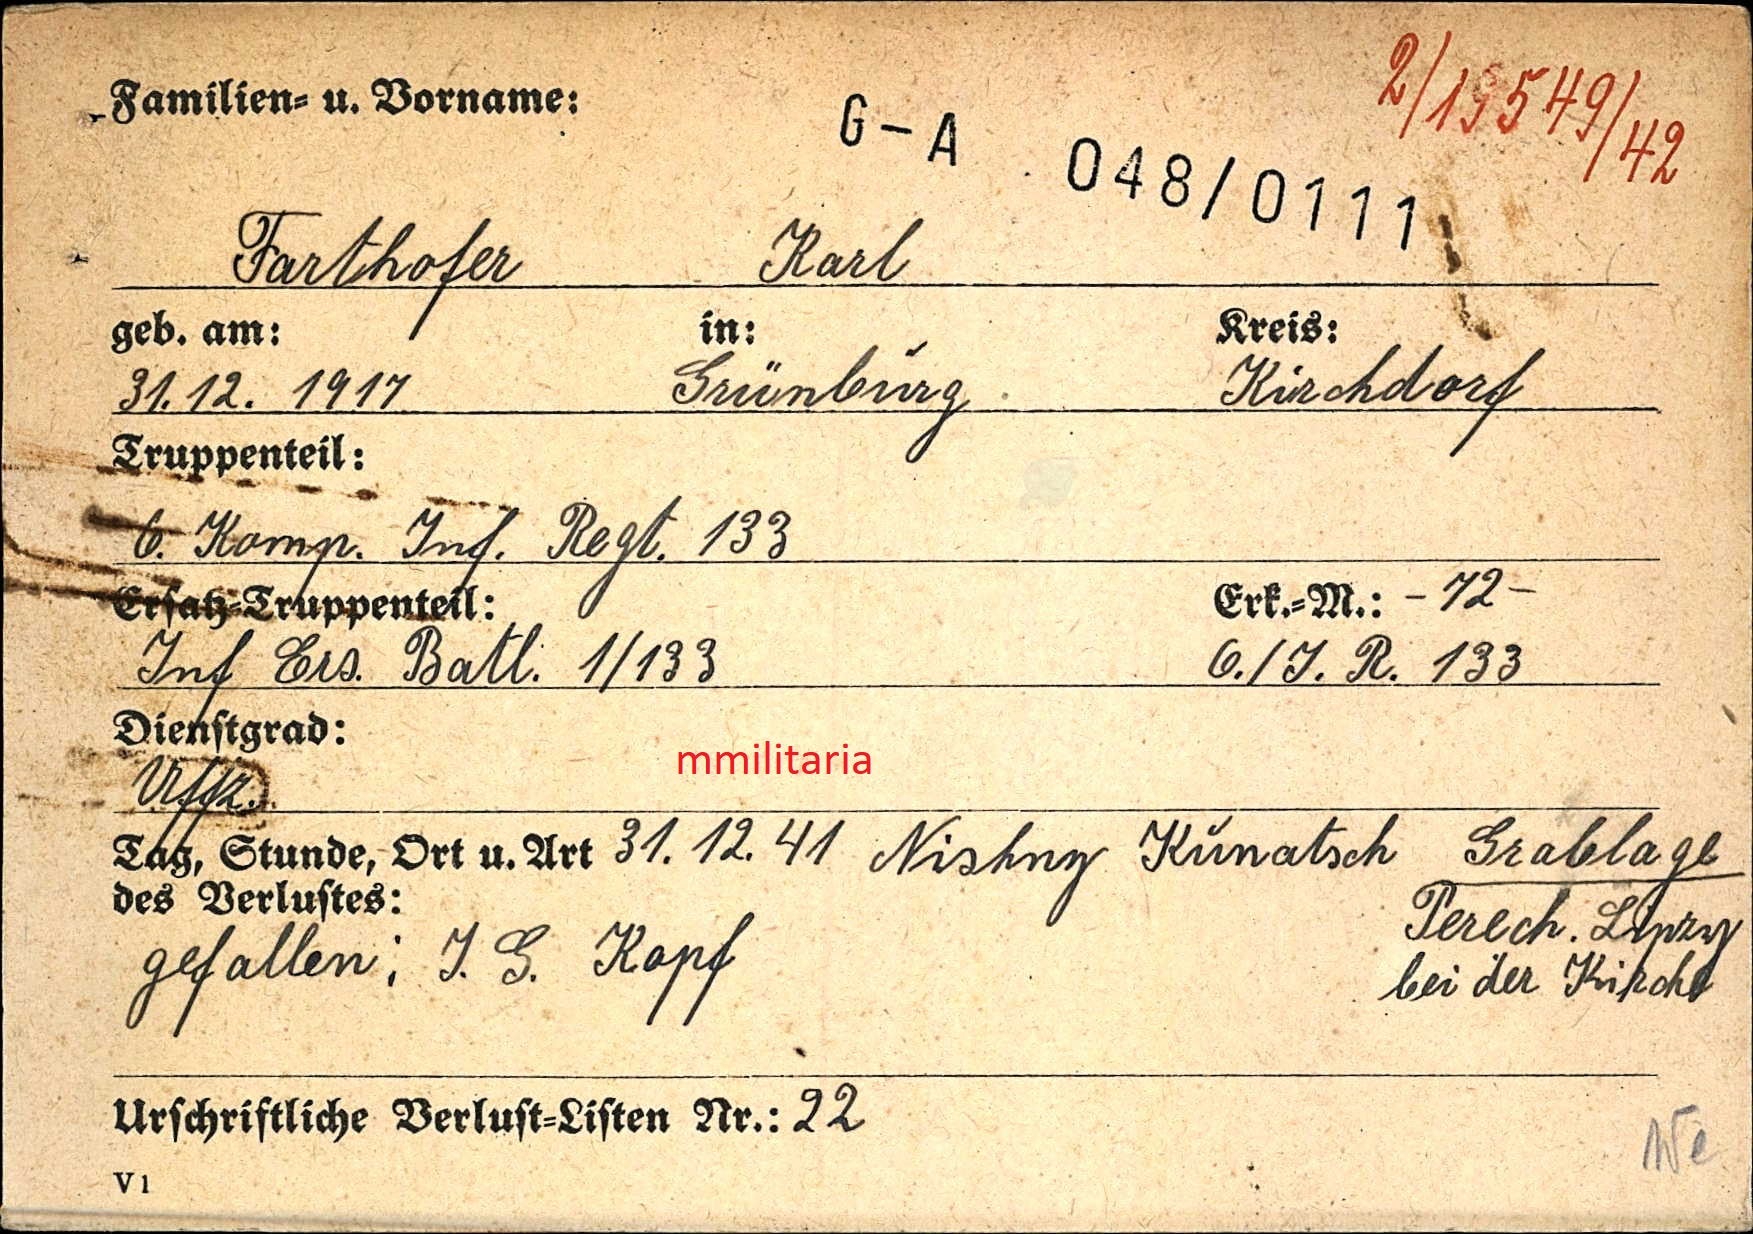 Familien- u. Vorname:
G-A 048/0111
2/19549/42
Farthofer Karl
geb. am: in: Kreis:
31.12. 1917 Grünburg Kirchdorf
Truppenteil:
6. Komp. Inf. Regt. 133
Ersatz-Truppenteil: Erk.-M.: -72-
Inf Ers. Batl. 1/133 6./I. R. 133
Dienstgrad:
Uffz.
mmilitaria
Tag, Stunde, Ort u. Art 31. 12. 41 Nishny Kunatsch Grablage
des Verlustes: Perech. Lipzy
gefallen; I. G. Kopf bei der Kirche
Urschriftliche Verlust-Listen Nr.: 22
V 1